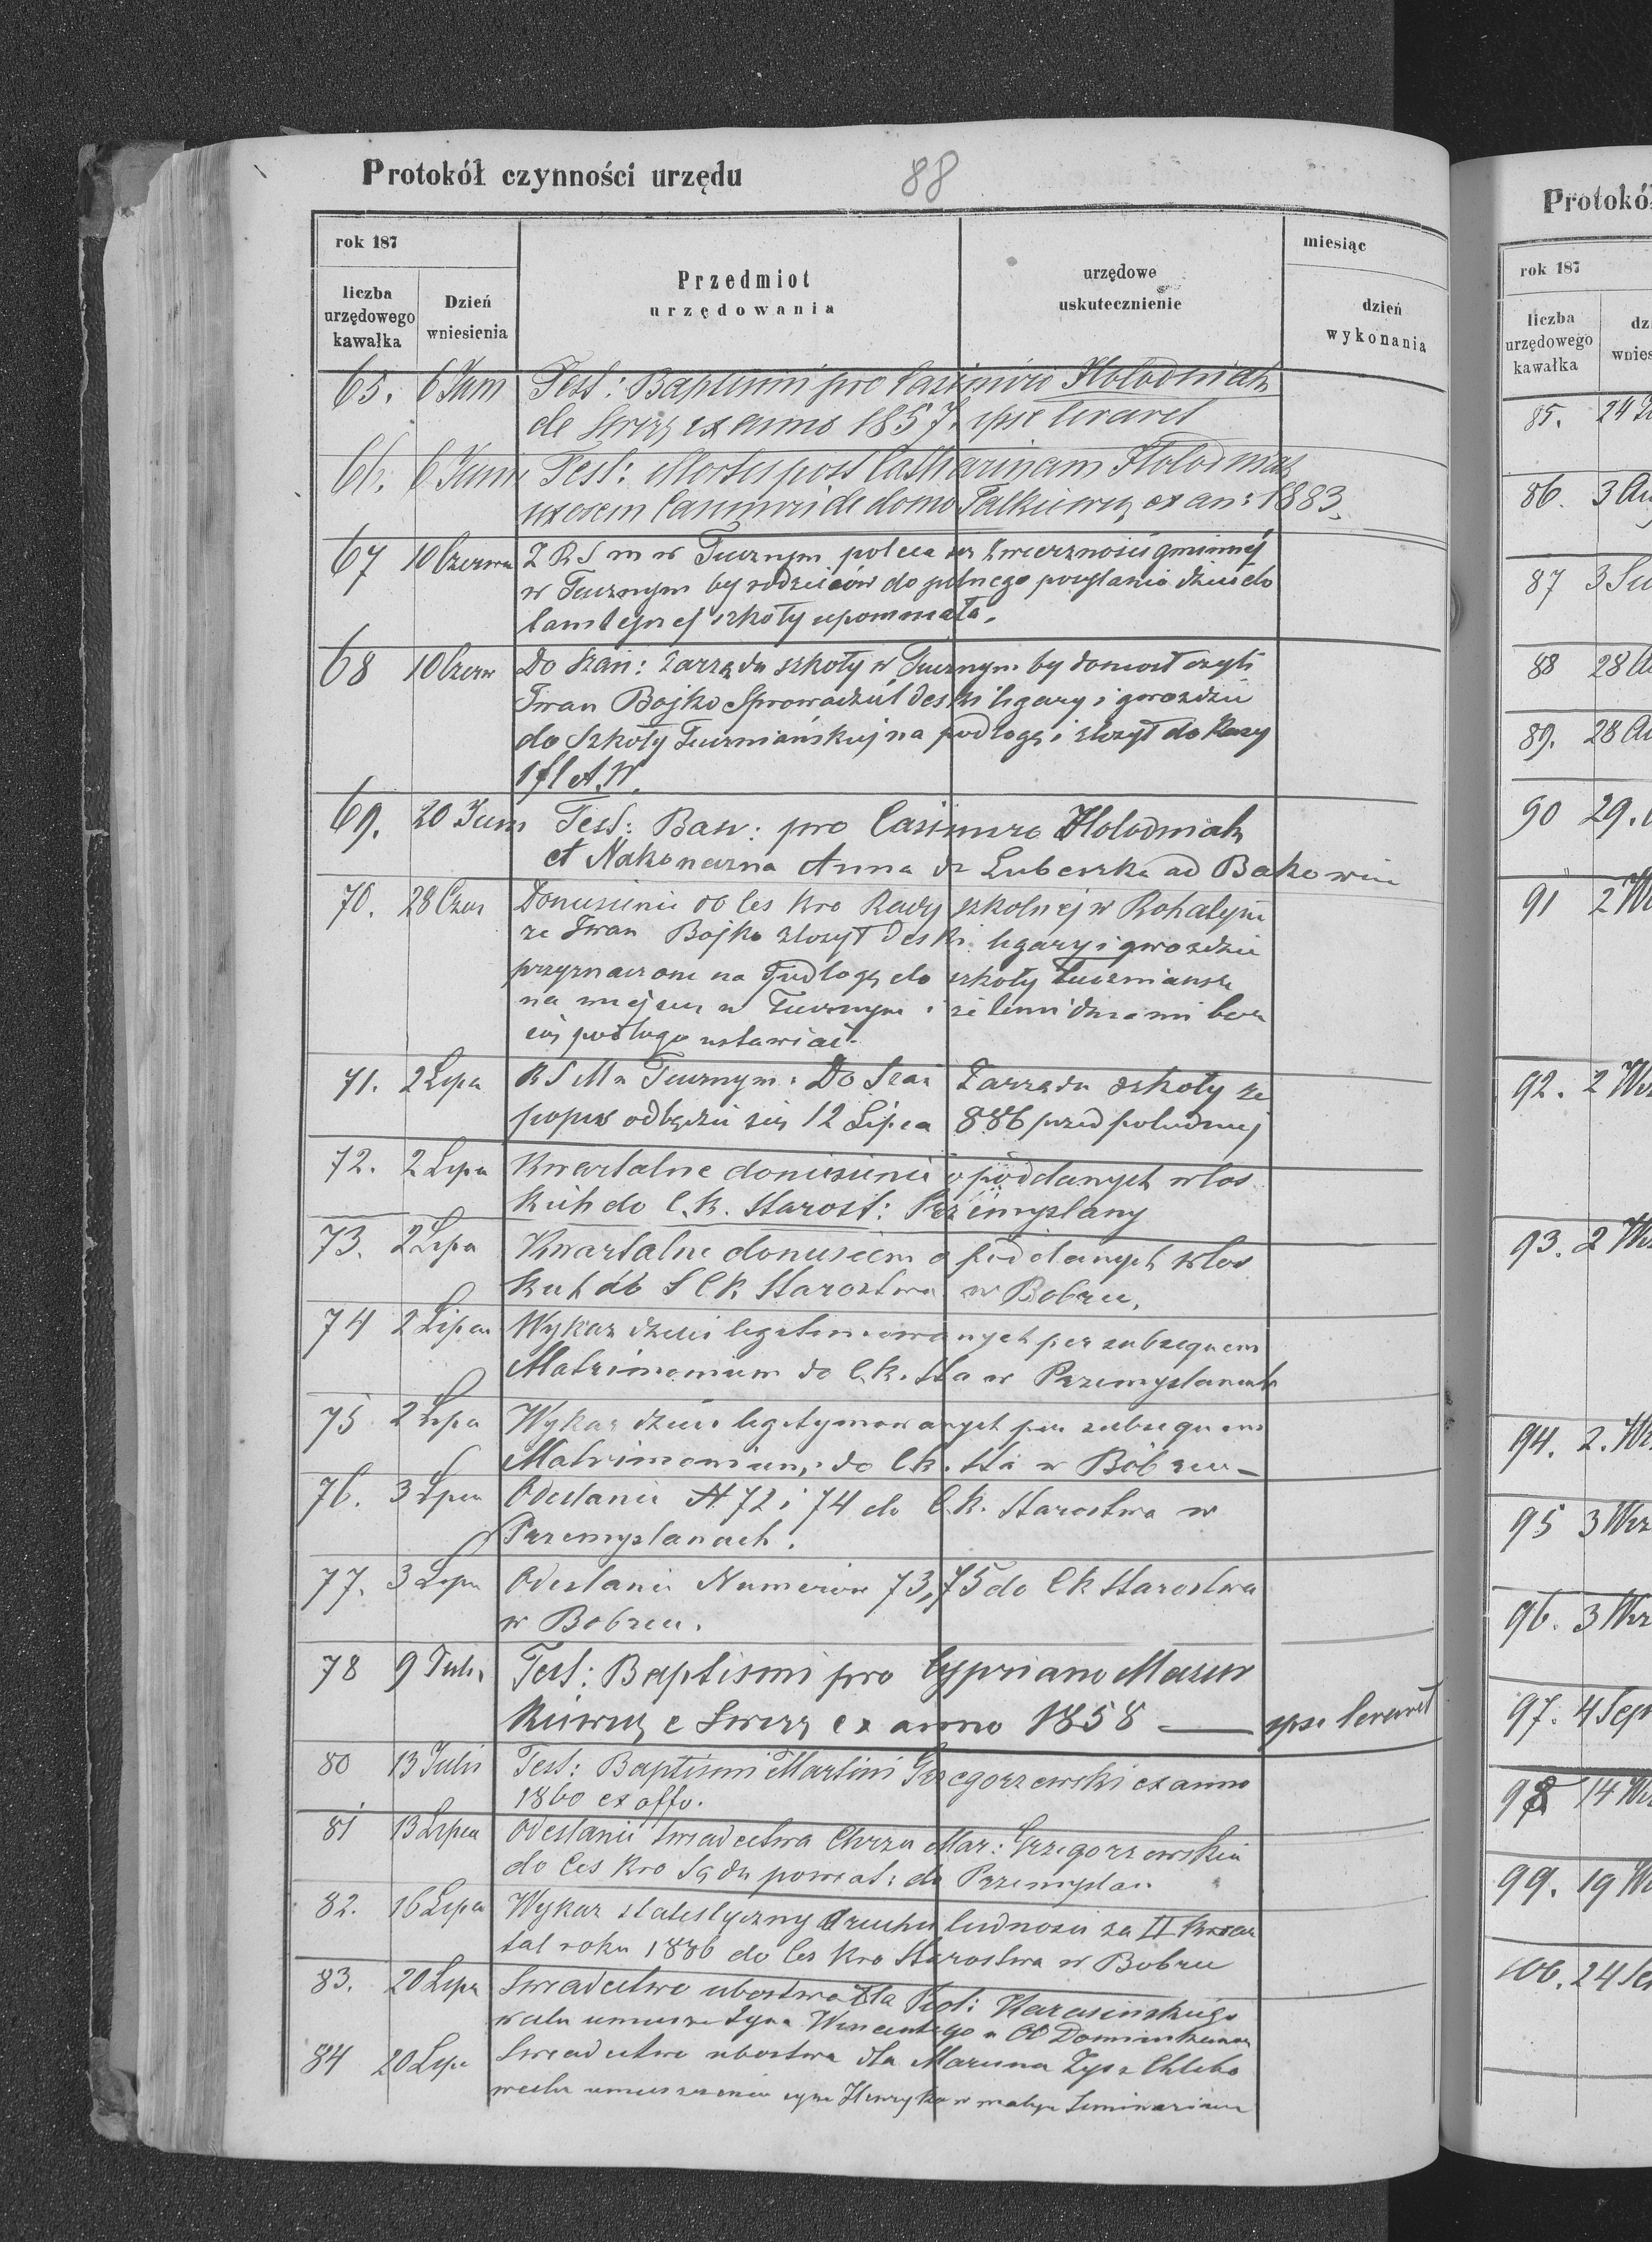 Protokół czynności urzędu
88
rok 187
liczba urzędowego kawałka
Dzień wniesienia
Przedmiot urzędowania
urzędowe uskutecznienie
miesiąc
dzień wykonania
65. 6 Juni Test: Baptismi pro Casimiro Hołodniak
de Swirz ex anno 1857. ipse levavet
66. 6 Juni Test: Mortis post Catharinam Hołodniak
uxorem Casimiri de domo Falkiewicz ex an: 1883.
67 10 Czerwca Z R S m w Tucznym poleca się Zwierzności gminnej
w Tucznym by rodziców do pilnego posyłania dzieci do
tamtejszej szkoły upomniała.
68 10 Czerw Do Szan: Zarządu szkoły w Tucznym by doniosł czyli
Iwan Bojko Sprowadził deski legary i gwozdzie
do Szkoły Tuczniańskiej na podłogę i złozył do Kasy
1 fl A.W.
69. 20 Juni Test: pro Casimiro Hołodniak
et Nakoneczna Anna
70. 28 Czer Doniesienie do Ces Kro Rady szkolnej w Rohatyni
ze Iwan Bojko złozył deski legary i gwozdzie
przeznaczone na Podłogę do szkoły Tuczniansk
na miejscu w Tucznym i ze temi dniami
podłoga ustawiać.
71. 2 Lipca R S M w Tucznym: Do Szan Zarządu szkoły ze
popis odbędzie się 12 Lipca 886 przed południej
72. 2 Lipca Kwartalne doniesienie o poddanych włos
kich do C.K. Starost: Przemyslany
73. 2 Lipca Kwartalne doniesieni o poddanych włos
kich do S C K Starostwa w Bobrce.
74 2 Lipca Wykaz dzieci legitimowanych per subsequens
Matrimonium do C.K. Sta w Przemyslanach
75 2 Lipca Wykaz dzieci legitymowanych per subsequens
Matrimonium, do C.K. Sta w Bóbrce –
76. 3 Lipca Odesłanie N 72 i 74 do C.K. Starostwa w
Przemyslanach.
77. 3 Lipca Odesłanie Numerów 73, 75 do C K Starostwa
w Bobrce.
78 9 Juli Test: Baptismi pro Cypriano Mazur
kiewicz e Swirz ex anno 1858 — ipse levavet
80 13 Julii Test: Baptismi Martini Grzegorzewski ex anno
1860 ex offo.
81 13 Lipca Odesłanie swiadectwa Chrztu Mar: Grzegorzewskie
do Ces Kro Sądu powiat: do Przemyslan
82. 16 Lipca Wykaz statestyczny ruchu ludnosci za II kwar
tal roku 1886 do Ces Kro Starostwa w Bobrce
83. 20 Lipca Swiadectwo ubostwa dla Piot: Harasinskiego
w celu umieszcz Syna Wincentego u OO Dominikanow
84 20 Lipc Swiadectwo ubostwa dla
w celu umieszczenia syna Henryka w małym Seminarium
Protokół
rok 187
liczba urzędowego kawałka
85. 24
86. 3
87 3
88 28
89. 28
90 29.
91 2
92. 2
93. 2
94. 2.
95 3 Wrz
96. 3 Wrz
97. 4 Sep
98 14
99. 19
100. 24